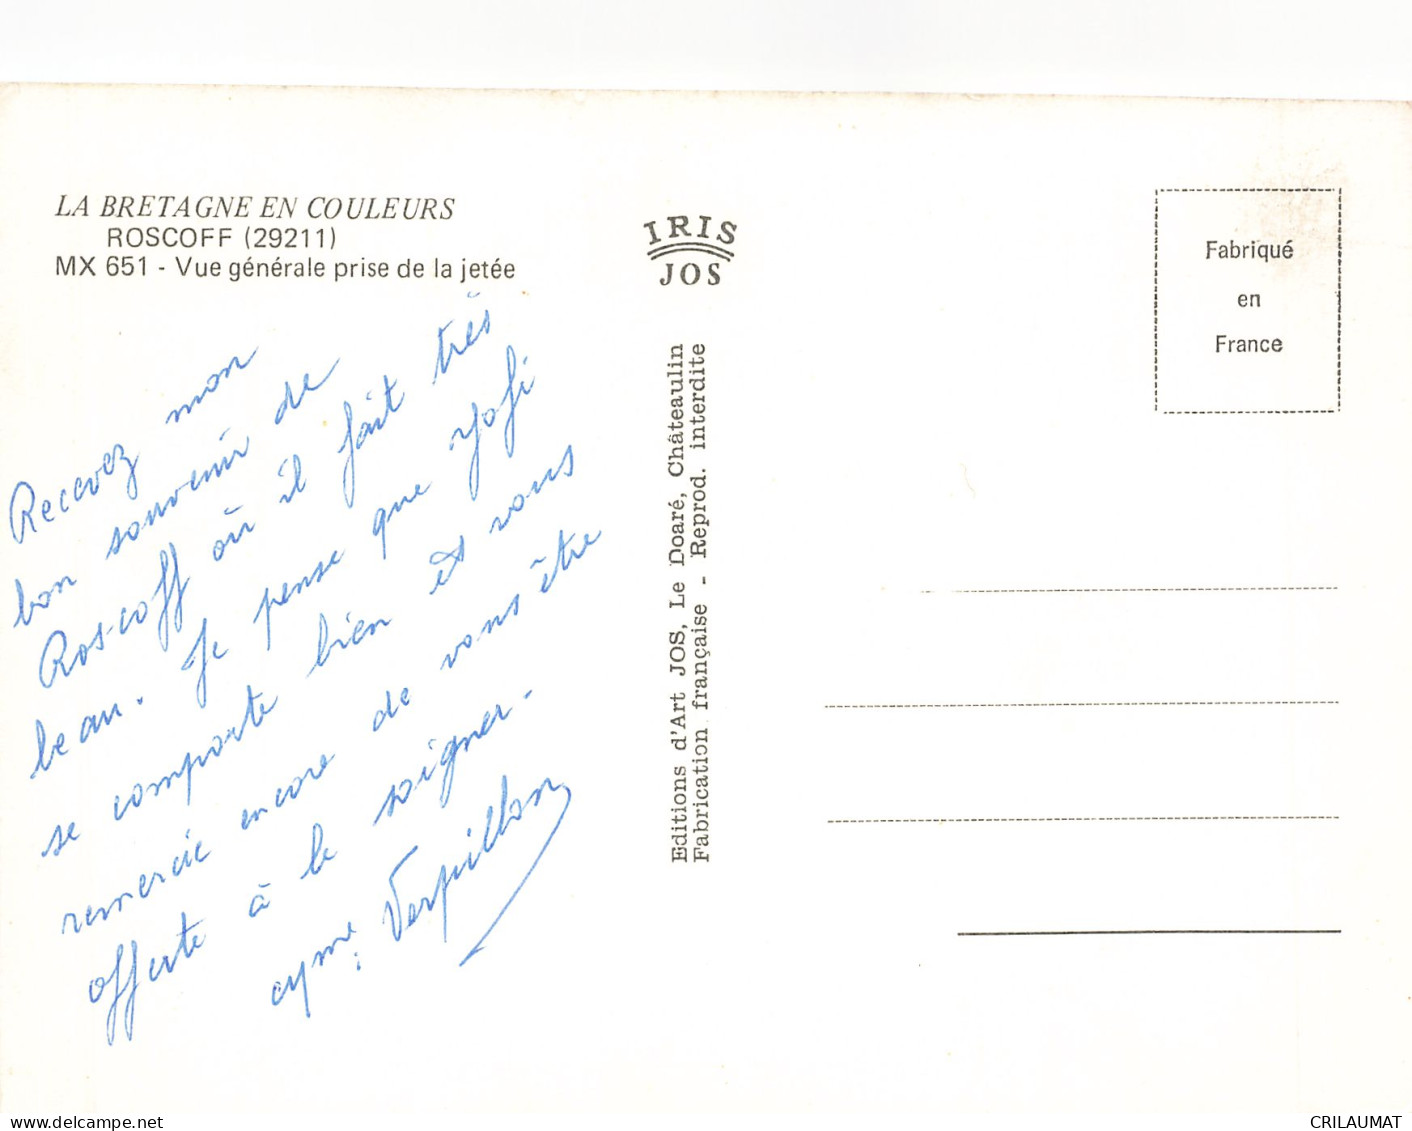 LA BRETAGNE EN COULEURS
ROSCOFF (29211)
MX 651 - Vue générale prise de la jetée
Recevez mon
bon souvenir de
Roscoff où il fait très
beau. Je pense que
se comporte bien et vous
remercie encore de vous être
offerte à le soigner.
Verpillon
IRIS
JOS
Editions d'Art JOS, Le Doaré, Châteaulin
Fabrication française - Reprod. interdite
Fabriqué
en
France
www.delcampe.net
CRILAUMAT